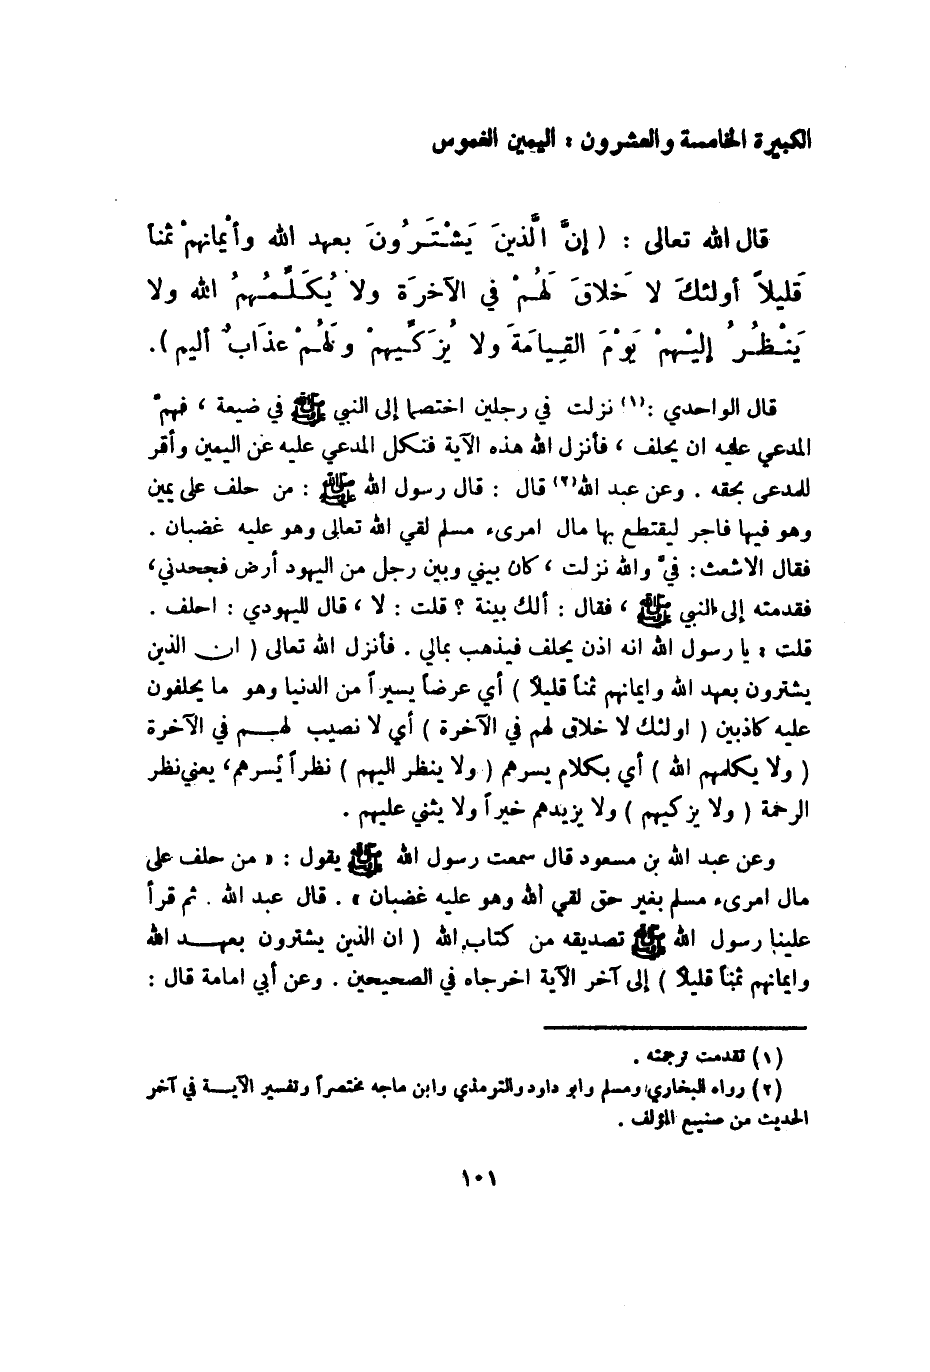 الكبيرة الخامسة والعشرون : اليمين الغموس
قال الله تعالى : ( إنَّ الَّذينَ يَشْتَرُونَ بعهد الله وأيْمانهمْ ثمناً
قَليلاً أولئكَ لا خَلاقَ لَهُمْ في الآخرَة ولا يُكَلِّمُهمُ الله ولا
يَنْظُرُ إليْهمْ يَوْمَ القيامَة ولا يُزَكِّيهمْ ولَهُمْ عذَابٌ أليم ).
قال الواحدي :(١) نزلت في رجلين اختصما إلى النبي ﷺ في ضيعة ، فهمّ
المدعي عليه ان يحلف ، فأنزل الله هذه الآية فنكل المدعي عليه عن اليمين وأقر
للمدعى بحقه . وعن عبد الله(٢) قال : قال رسول الله ﷺ : من حلف على يمين
وهو فيها فاجر ليقتطع بها مال امرىء مسلم لقي الله تعالى وهو عليه غضبان .
فقال الاشعث : فيّ والله نزلت ، كان بيني وبين رجل من اليهود أرض فجحدني ،
فقدمته إلى النبي ﷺ ، فقال : ألك بينة ؟ قلت : لا ، قال لليهودي : احلف .
قلت : يا رسول الله انه اذن يحلف فيذهب بمالي . فأنزل الله تعالى ( ان الذين
يشترون بعهد الله وايمانهم ثمناً قليلاً ) أي عرضاً يسيراً من الدنيا وهو ما يحلفون
عليه كاذبين ( اولئك لا خلاق لهم في الآخرة ) أي لا نصيب لهم في الآخرة
( ولا يكلمهم الله ) أي بكلام يسرهم ( ولا ينظر اليهم ) نظراً يُسرهم ، يعني نظر
الرحمة ( ولا يزكيهم ) ولا يزيدهم خيراً ولا يثني عليهم .
وعن عبد الله بن مسعود قال سمعت رسول الله ﷺ يقول : « من حلف على
مال امرىء مسلم بغير حق لقي الله وهو عليه غضبان » . قال عبد الله . ثم قرأ
علينا رسول الله ﷺ تصديقه من كتاب الله ( ان الذين يشترون بعهد الله
وايمانهم ثمناً قليلاً ) إلى آخر الآية اخرجاه في الصحيحين . وعن أبي امامة قال :
(١) تقدمت ترجمته .
(٢) رواه البخاري ومسلم وابو داود والترمذي وابن ماجه مختصراً وتفسير الآية في آخر
الحديث من صنيع المؤلف .
١٠١